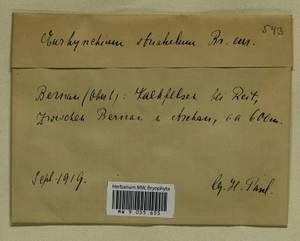 543
Eurhynchium striatulum Br. eur.
Bernau (Obb.): Kalkfelsen bei Reit,
zwischen Bernau u Aschau, ca 600m.
Sept. 1919.
lg. H. Paul.
Herbarium MW, Bryophyta
MW 9 055 655